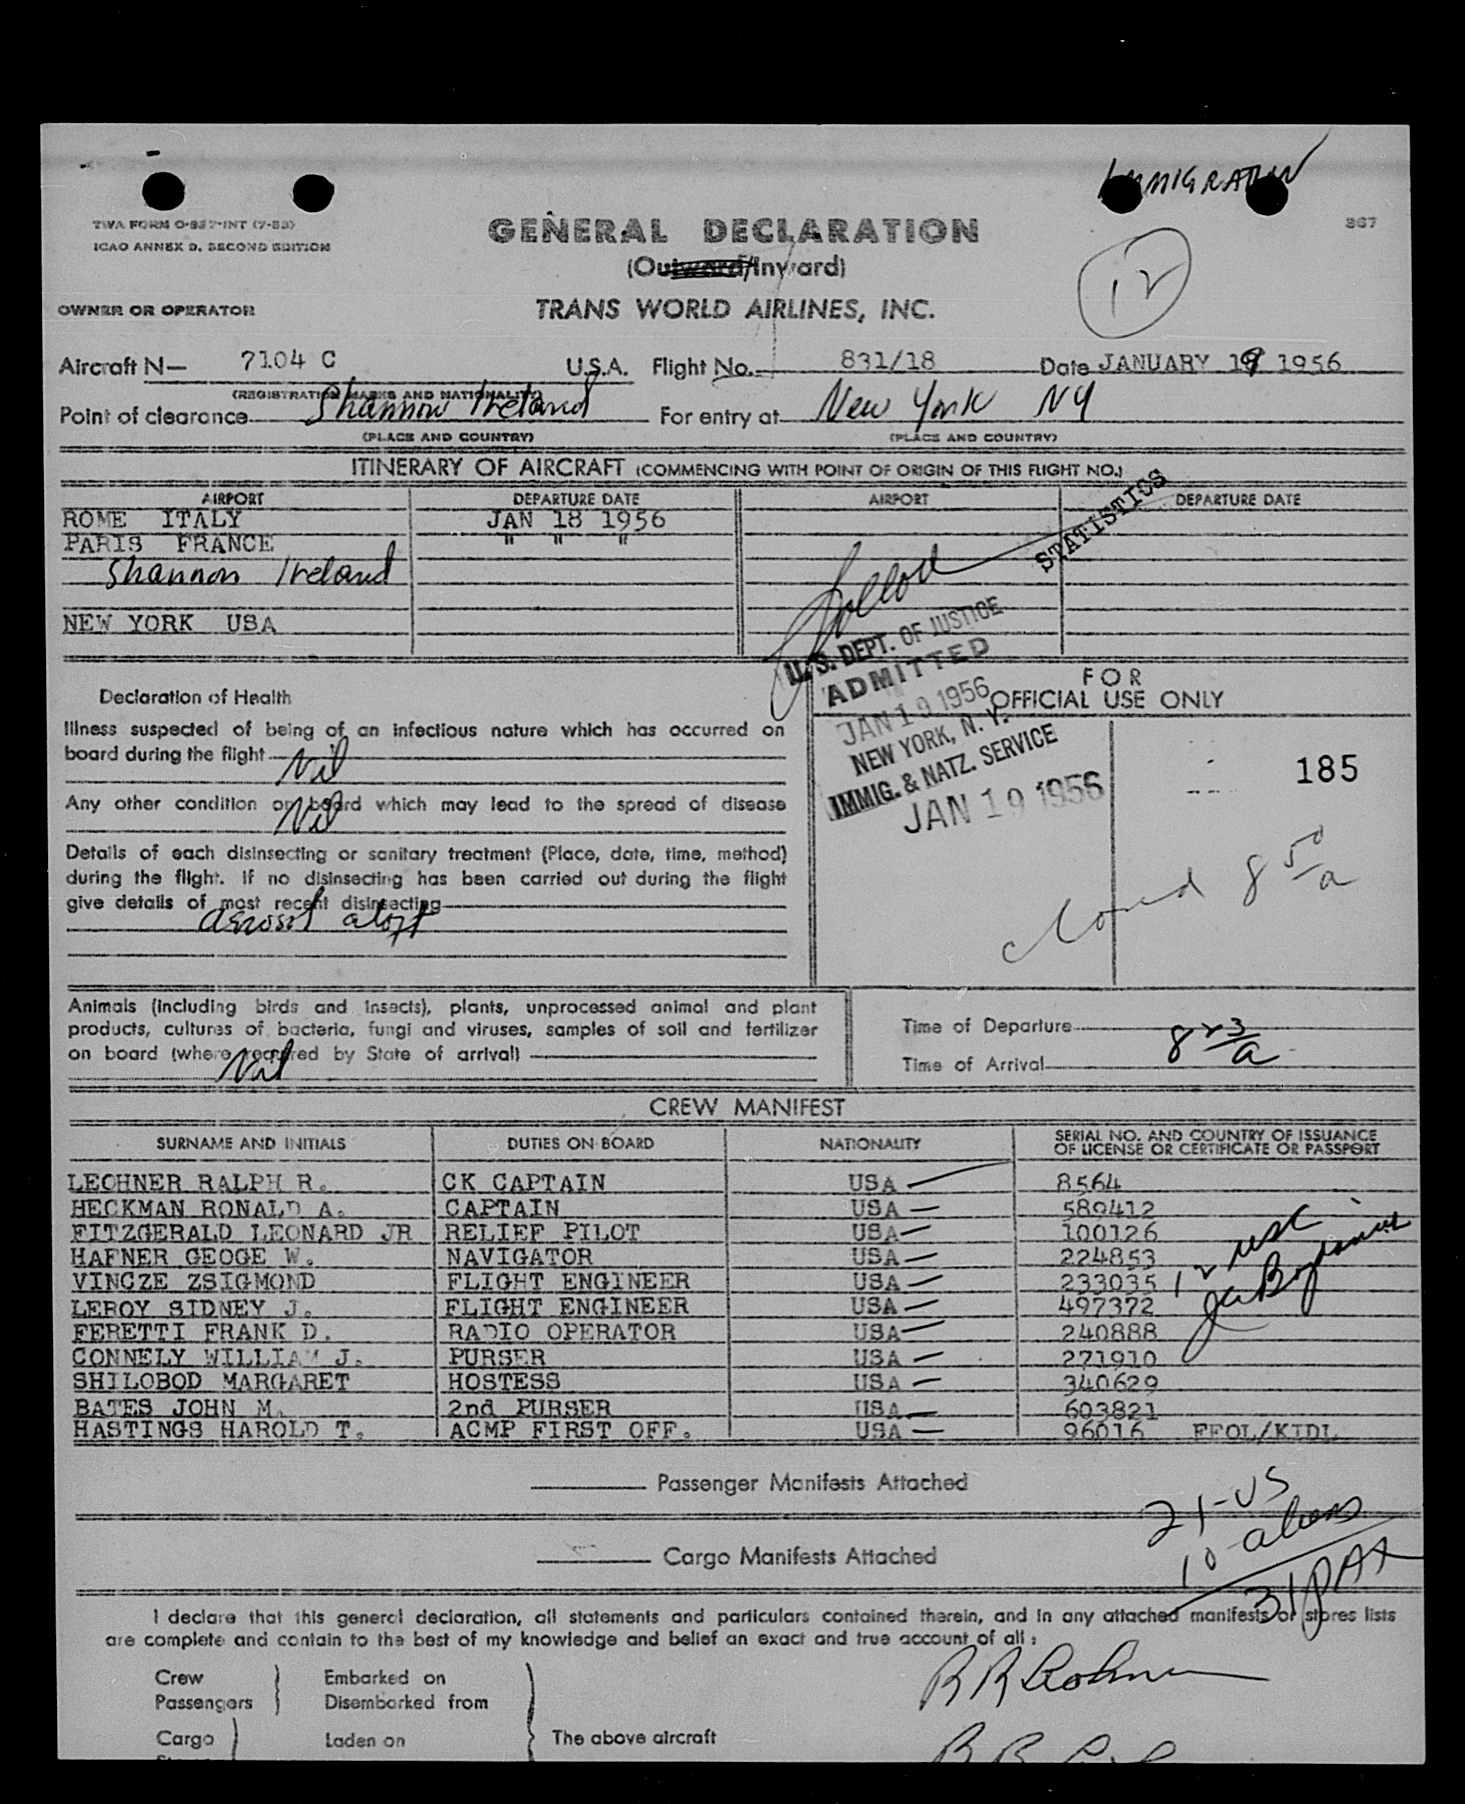 IMMIGRATION
TWA FORM O-837-INT (7-53)
ICAO ANNEX 9, SECOND EDITION
367
GENERAL DECLARATION
(Outward/Inward)
12
OWNER OR OPERATOR TRANS WORLD AIRLINES, INC.
Aircraft N— 7104 C U.S.A. Flight No. 831/18 Date JANUARY 19 1956
(REGISTRATION MARKS AND NATIONALITY)
Point of clearance Shannon Ireland For entry at New York NY
(PLACE AND COUNTRY) (PLACE AND COUNTRY)
ITINERARY OF AIRCRAFT (COMMENCING WITH POINT OF ORIGIN OF THIS FLIGHT NO.)
AIRPORT DEPARTURE DATE AIRPORT DEPARTURE DATE
ROME ITALY JAN 18 1956
PARIS FRANCE " " "
Shannon Ireland
NEW YORK USA
STATISTICS
U.S. DEPT. OF JUSTICE
ADMITTED
JAN 19 1956
NEW YORK, N. Y.
IMMIG. & NATZ. SERVICE
JAN 19 1956
FOR
OFFICIAL USE ONLY
185
8 50/a
Declaration of Health
Illness suspected of being of an infectious nature which has occurred on
board during the flight Nil
Any other condition on board which may lead to the spread of disease
Nil
Details of each disinsecting or sanitary treatment (Place, date, time, method)
during the flight. If no disinsecting has been carried out during the flight
give details of most recent disinsecting
aerosol aloft
Animals (including birds and insects), plants, unprocessed animal and plant
products, cultures of bacteria, fungi and viruses, samples of soil and fertilizer
on board (where required by State of arrival)
Nil
Time of Departure
Time of Arrival 8 23/a
CREW MANIFEST
SURNAME AND INITIALS DUTIES ON BOARD NATIONALITY SERIAL NO. AND COUNTRY OF ISSUANCE
OF LICENSE OR CERTIFICATE OR PASSPORT
LECHNER RALPH R. CK CAPTAIN USA 8564
HECKMAN RONALD A. CAPTAIN USA 589412
FITZGERALD LEONARD JR RELIEF PILOT USA 100126
HAFNER GEOGE W. NAVIGATOR USA 224853
VINCZE ZSIGMOND FLIGHT ENGINEER USA 233035
LEROY SIDNEY J. FLIGHT ENGINEER USA 497372
FERETTI FRANK D. RADIO OPERATOR USA 240888
CONNELY WILLIAM J. PURSER USA 271910
SHILOBOD MARGARET HOSTESS USA 340629
BATES JOHN M. 2nd PURSER USA 603821
HASTINGS HAROLD T. ACMP FIRST OFF. USA 96016 FFOL/KIDL
12 usc
Passenger Manifests Attached
21-US
10-aliens
31 PAX
Cargo Manifests Attached
I declare that this general declaration, all statements and particulars contained therein, and in any attached manifests or stores lists
are complete and contain to the best of my knowledge and belief an exact and true account of all :
Crew Embarked on
Passengers Disembarked from
Cargo Laden on The above aircraft